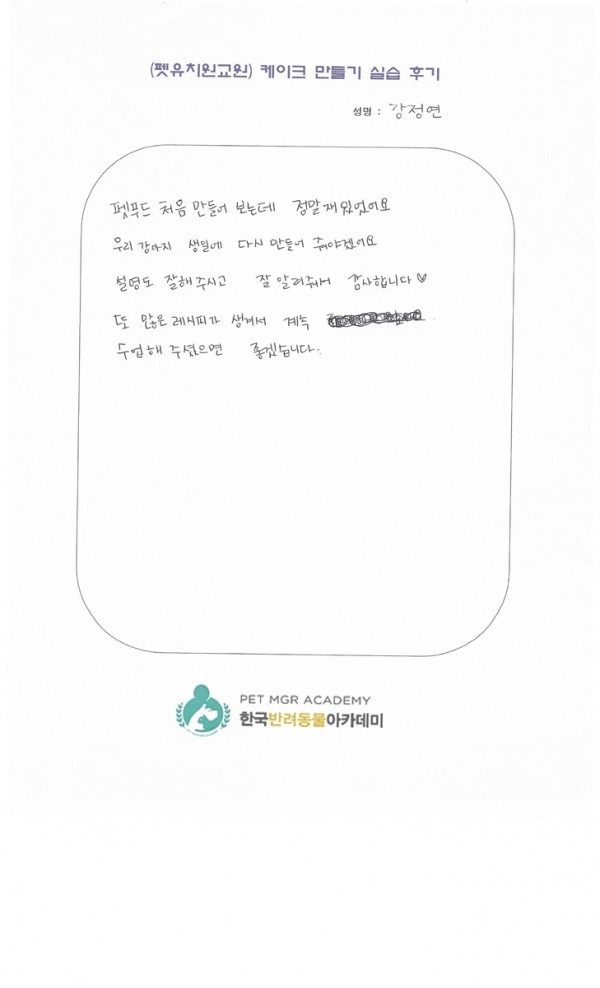 (펫유치원교원) 케이크 만들기 실습 후기
성명 : 강정연
펫푸드 처음 만들어 보는데 정말 재밌었어요
우리 강아지 생일에 다시 만들어 줘야겠어요
설명도 잘해주시고 잘 알려줘서 감사합니다♡
또 많은 레시피가 생겨서 계속
수업해 주셨으면 좋겠습니다.
PET MGR ACADEMY
한국반려동물아카데미